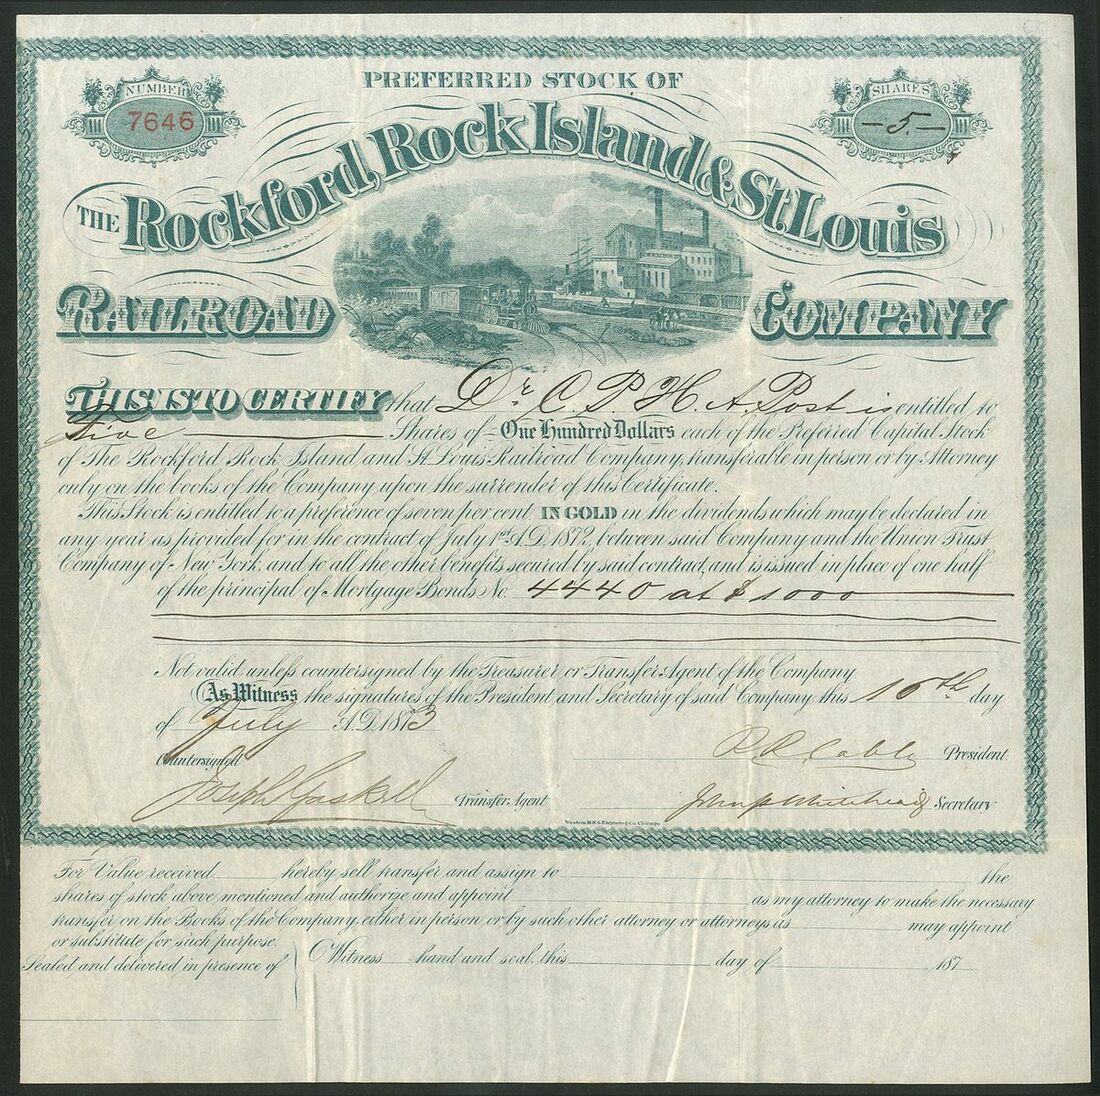 PREFERRED STOCK OF
NUMBER
7646
SHARES
—5.—
THE Rockford, Rock Island & St. Louis
RAILROAD COMPANY
THIS IS TO CERTIFY that Dr. C. P. H. A. Post is entitled to
Five Shares of One Hundred Dollars each of the Preferred Capital Stock
of The Rockford Rock Island and St. Louis Railroad Company, transferable in person or by Attorney
only on the books of the Company upon the surrender of this Certificate.
This Stock is entitled to a preference of seven per cent IN GOLD in the dividends which may be declared in
any year as provided for in the contract of July 1st A.D. 1872, between said Company and the Union Trust
Company of New York, and to all the other benefits secured by said contract, and is issued in place of one half
of the principal of Mortgage Bonds No. 4440 at $1000
Not valid unless countersigned by the Treasurer or Transfer Agent of the Company
As Witness the signatures of the President and Secretary of said Company this 16th day
of July A.D. 1873
Countersigned R R Cable President
Joseph Gaskell Transfer Agent John P Whitehead Secretary
Western B.N. & Engraving Co. Chicago
For Value received hereby sell transfer and assign to the
shares of stock above mentioned and authorize and appoint as my attorney to make the necessary
transfer on the Books of the Company, either in person, or by such other attorney or attorneys as may appoint
or substitute for such purpose.
Sealed and delivered in presence of Witness hand and seal, this day of 187